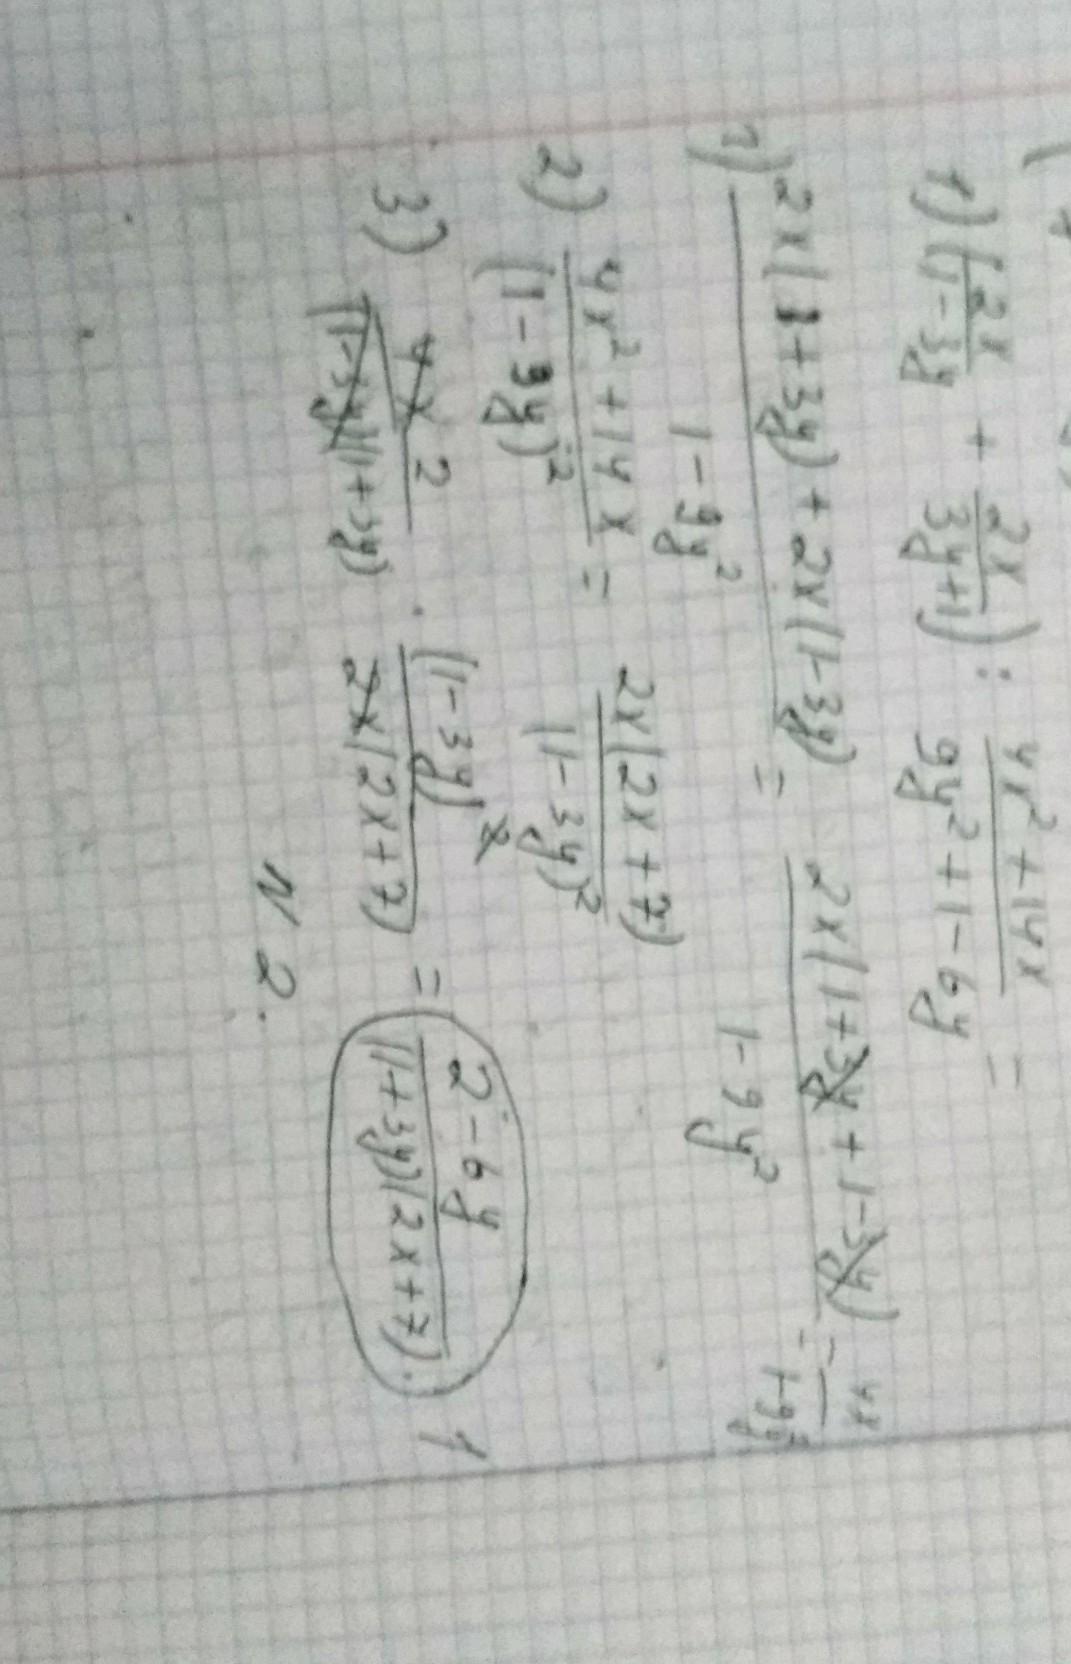 1) (2x/(1-3y) + 2x/(3y+1)) : (4x²+14x)/(9y²+1-6y) =
1) (2x(1+3y)+2x(1-3y))/(1-9y²) = (2x(1+3y+1-3y))/(1-9y²) = 4x/(1-9y²)
2) (4x²+14x)/(1-3y)² = 2x(2x+7)/(1-3y)²
3) 4x 2/((1-3y)(1+3y)) · (1-3y)²/(2x(2x+7)) = (2-6y)/((1+3y)(2x+7)). 1
N 2.